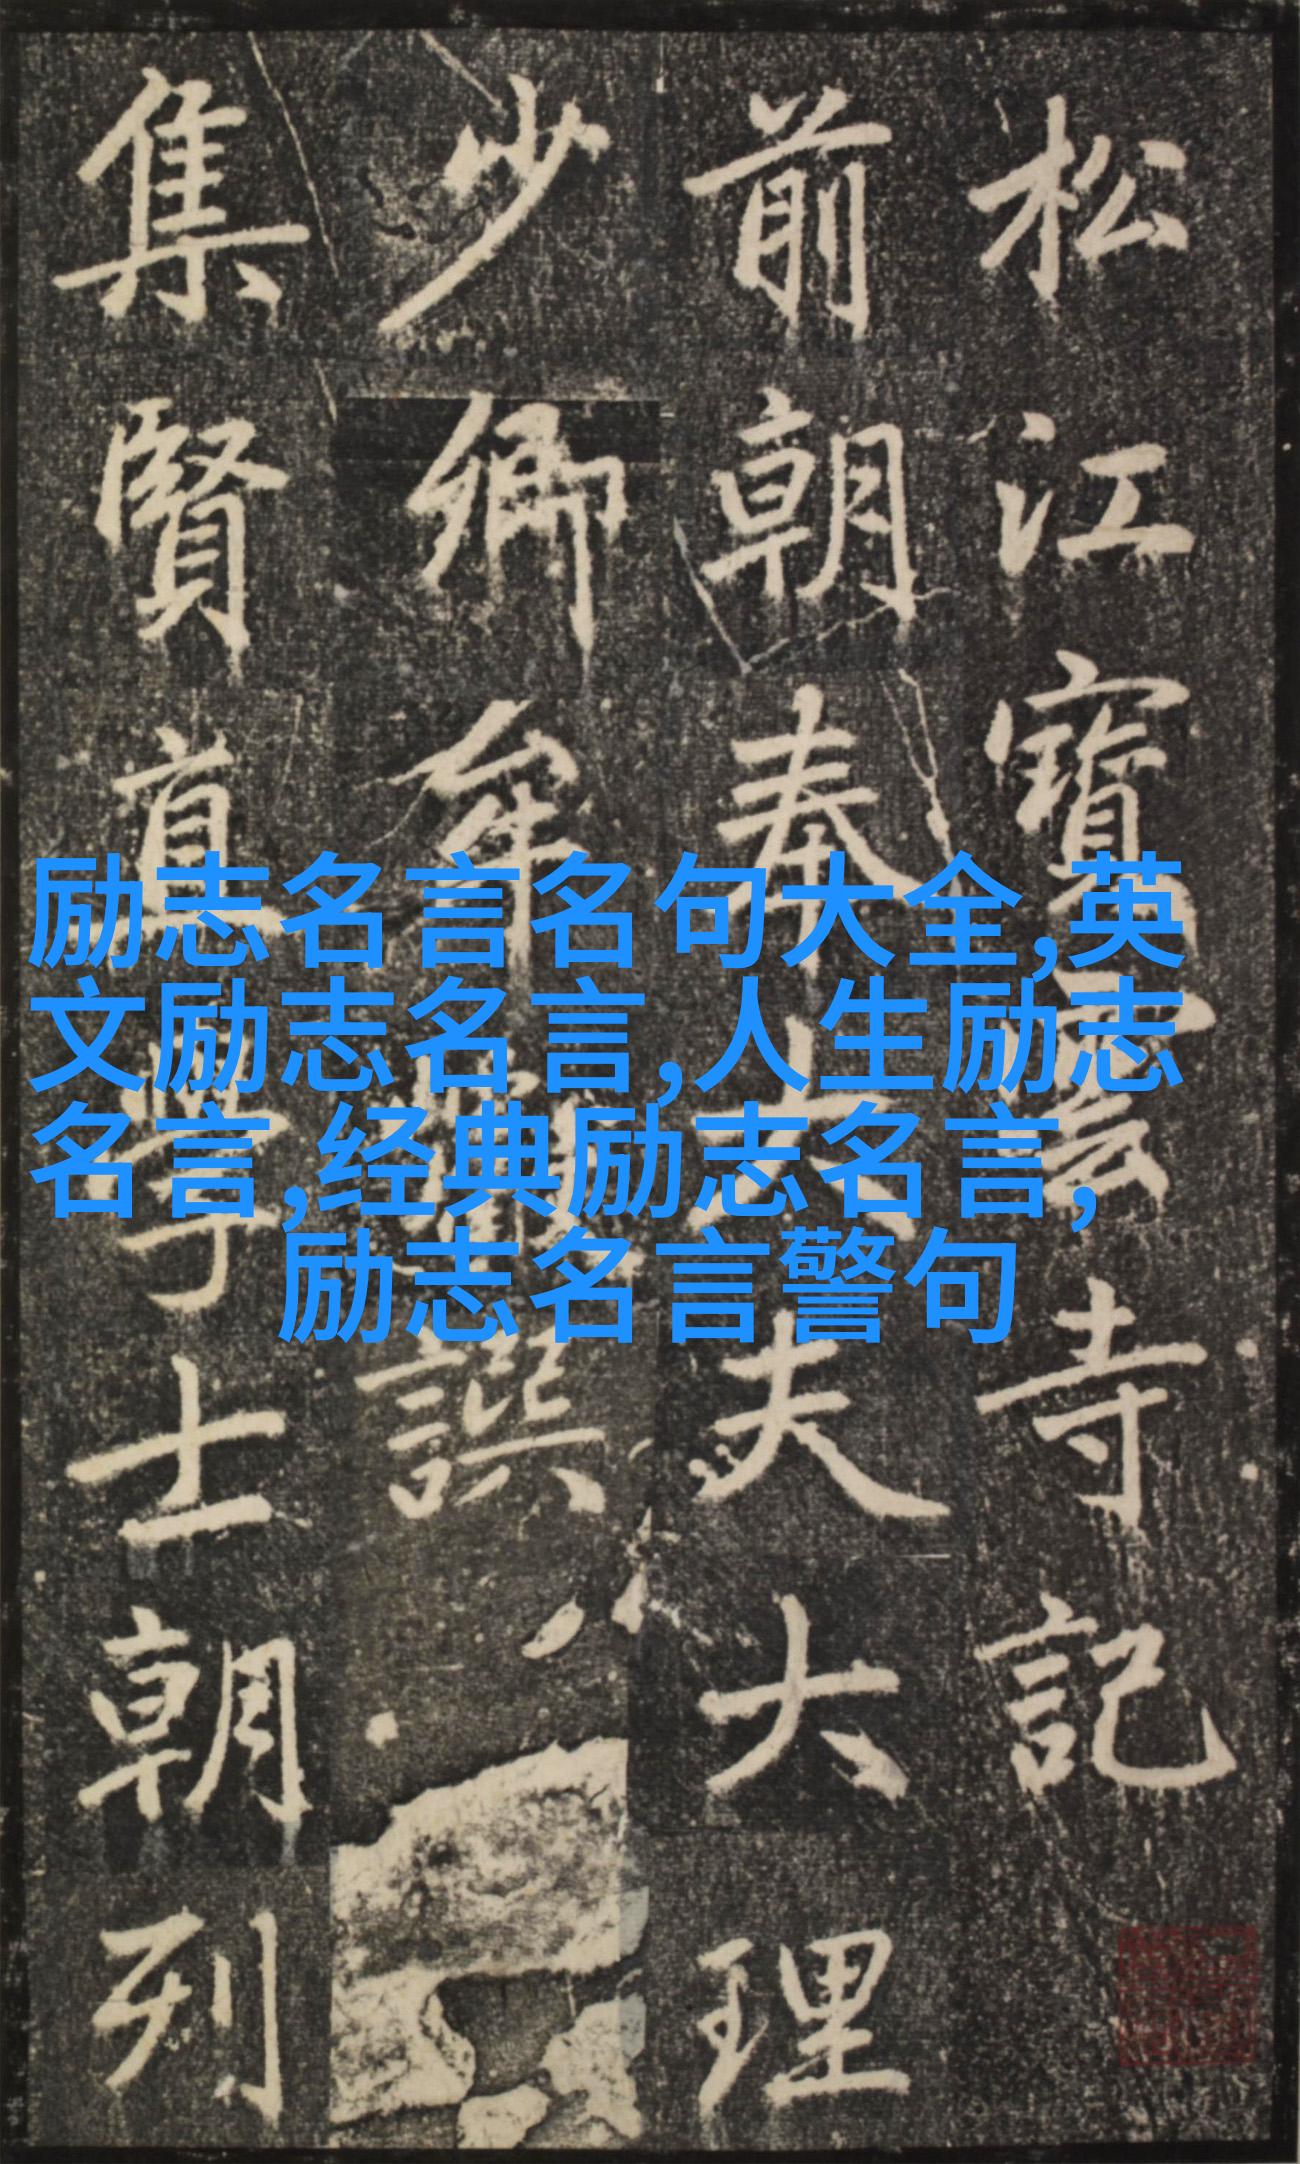 松江寶雲寺記
前朝奉大夫大理
少卿牟巘譔
集賢直學士朝列
励志名言名句大全,英
文励志名言,人生励志
名言,经典励志名言,
励志名言警句